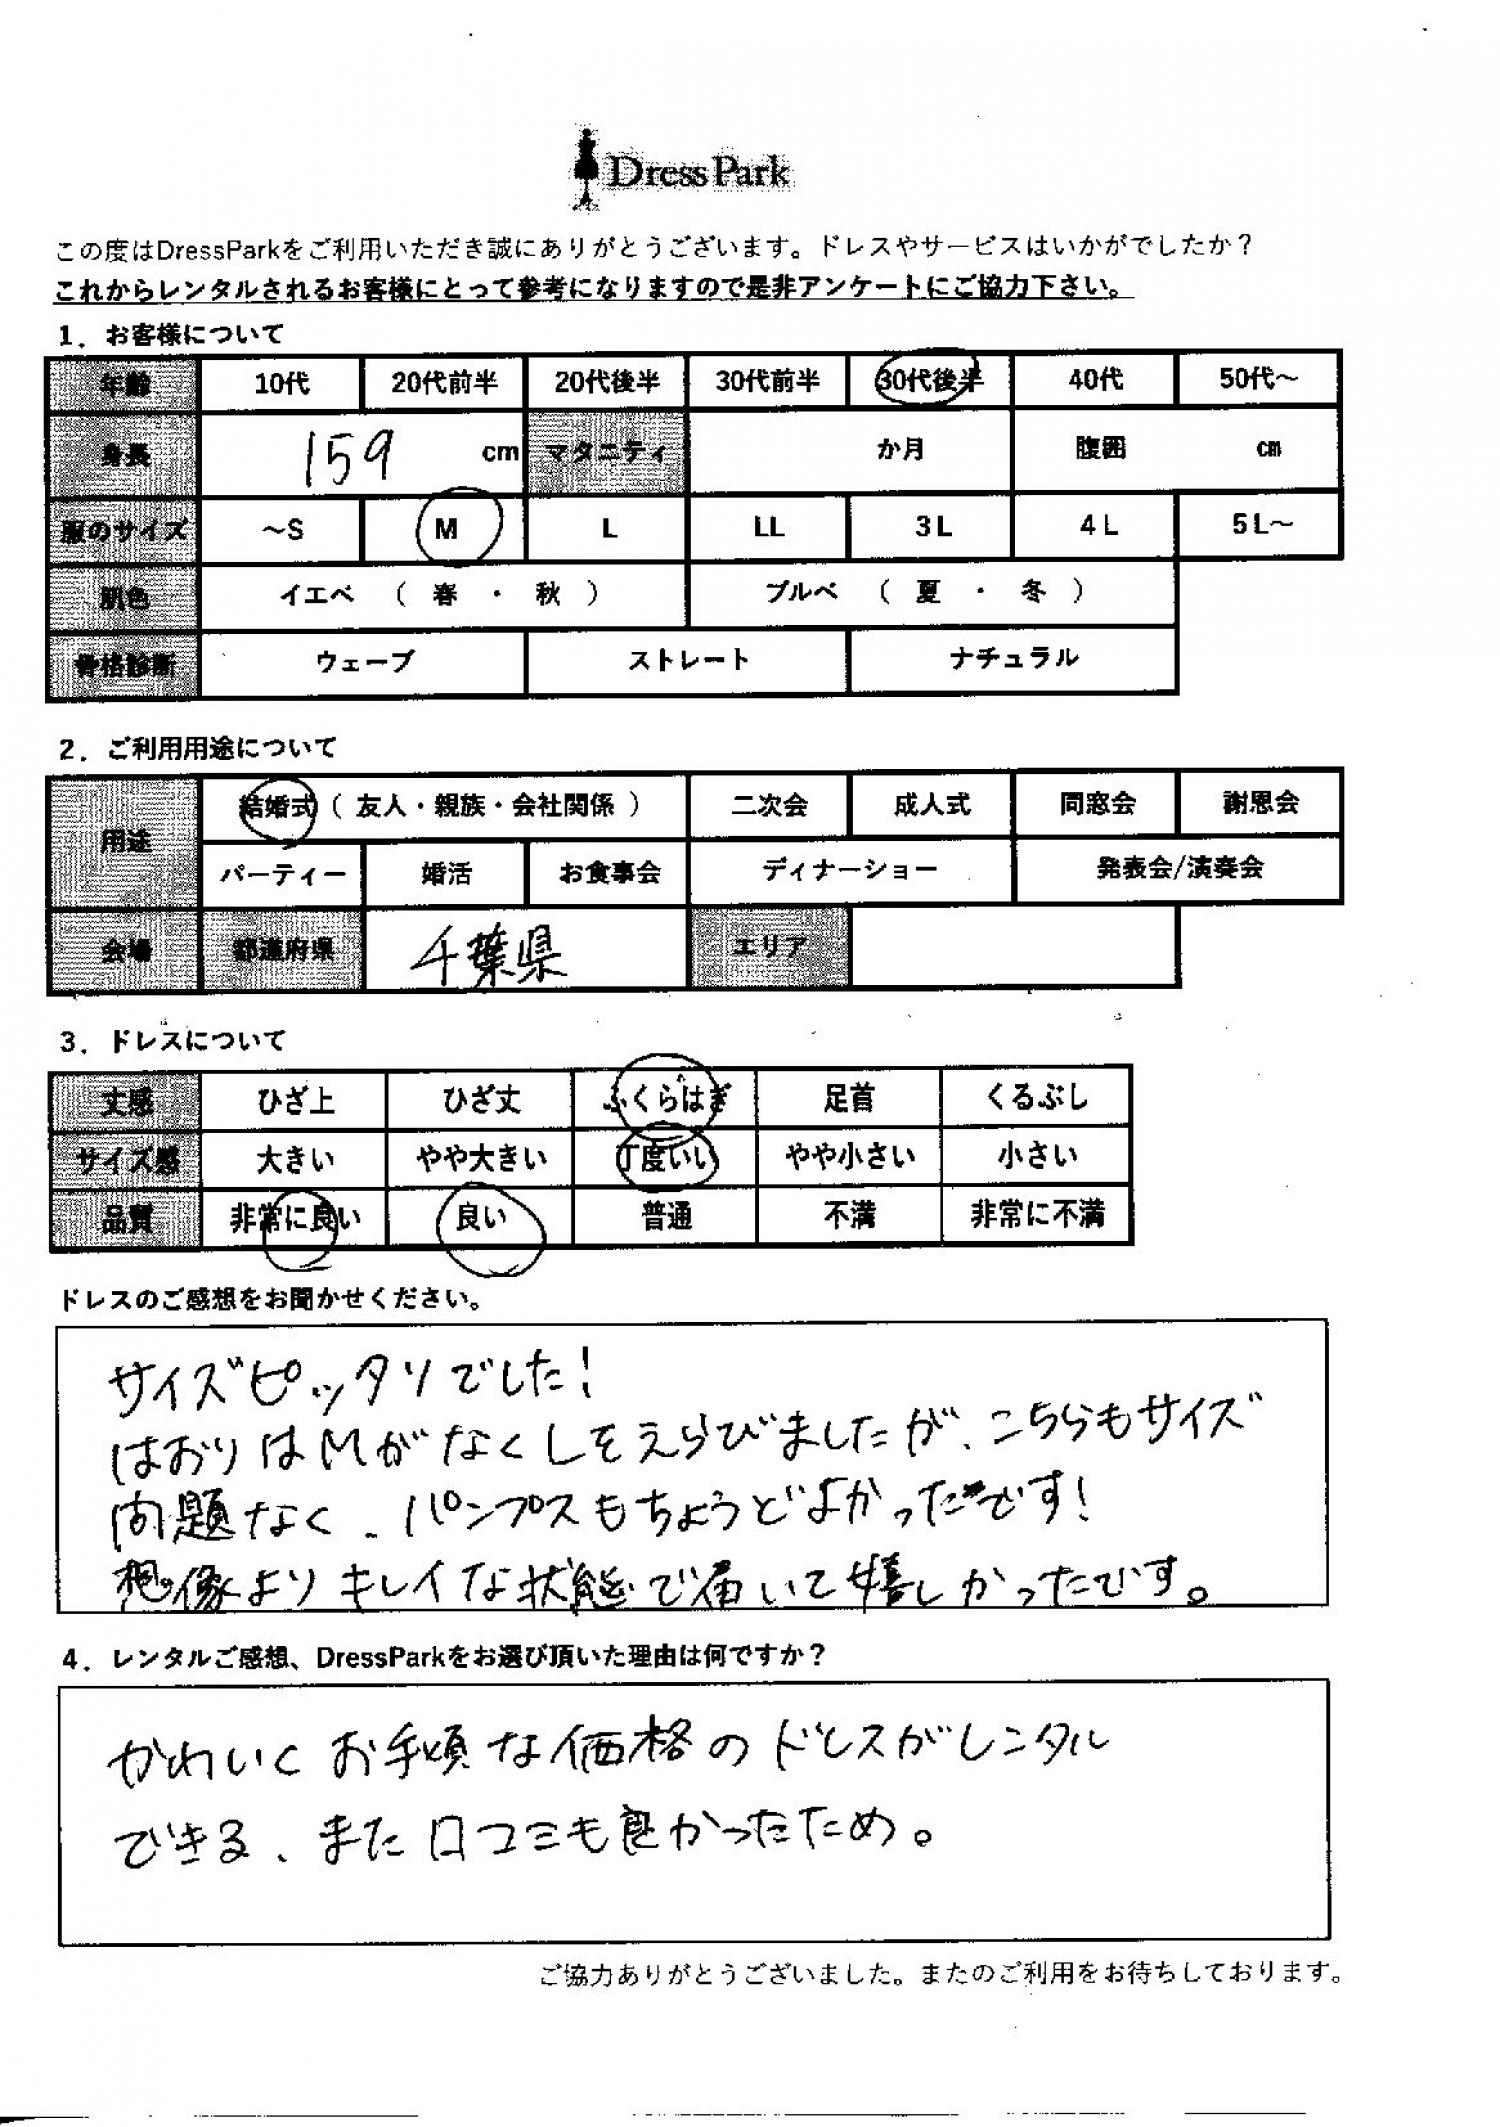 Dress Park
この度はDressParkをご利用いただき誠にありがとうございます。ドレスやサービスはいかがでしたか？
これからレンタルされるお客様にとって参考になりますので是非アンケートにご協力下さい。
1．お客様について
年齢 10代 20代前半 20代後半 30代前半 30代後半 40代 50代～
身長 159 cm マタニティ か月 腹囲 cm
服のサイズ ～S M L LL 3L 4L 5L～
肌色 イエベ （ 春 ・ 秋 ） ブルベ （ 夏 ・ 冬 ）
骨格診断 ウェーブ ストレート ナチュラル
2．ご利用用途について
用途 結婚式（ 友人・親族・会社関係 ） 二次会 成人式 同窓会 謝恩会
パーティー 婚活 お食事会 ディナーショー 発表会/演奏会
会場 都道府県 千葉県 エリア
3．ドレスについて
丈感 ひざ上 ひざ丈 ふくらはぎ 足首 くるぶし
サイズ感 大きい やや大きい 丁度いい やや小さい 小さい
品質 非常に良い 良い 普通 不満 非常に不満
ドレスのご感想をお聞かせください。
サイズピッタリでした！
はおりはMがなくLをえらびましたが、こちらもサイズ
問題なく、パンプスもちょうどよかったです！
想像よりキレイな状態で届いて嬉しかったです。
4．レンタルご感想、DressParkをお選び頂いた理由は何ですか？
かわいくお手頃な価格のドレスがレンタル
できる、また口コミも良かったため。
ご協力ありがとうございました。またのご利用をお待ちしております。